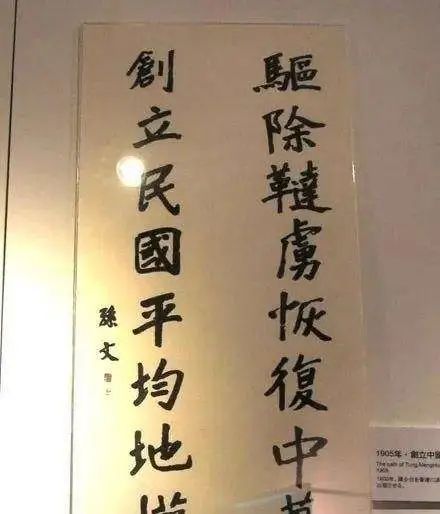 驅除韃虜恢復中華
創立民國平均地權
孫文
1905年・創立中國
The oath of Tung Meng Hui
1905